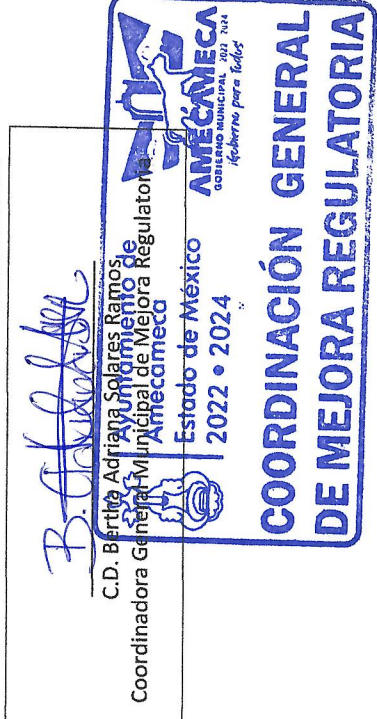 C.D. Bertha Adriana Solares Ramos
Coordinadora General Municipal de Mejora Regulatoria
Ayuntamiento de
Amecameca
Estado de México
2022 • 2024
AMECAMECA
GOBIERNO MUNICIPAL 2022 2024
¡Gobierno para todos!
COORDINACIÓN GENERAL
DE MEJORA REGULATORIA